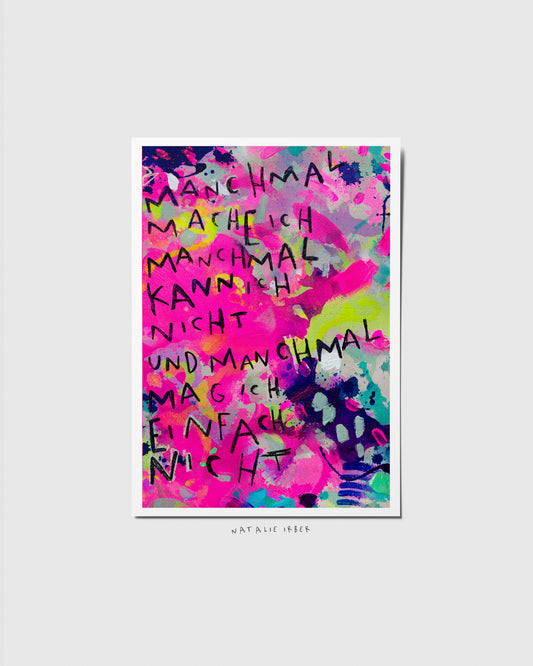 MANCHMAL
MACHE ICH
MANCHMAL
KANN ICH
NICHT
UND MANCHMAL
MAG ICH
EINFACH
NICHT
NATALIE IRBER